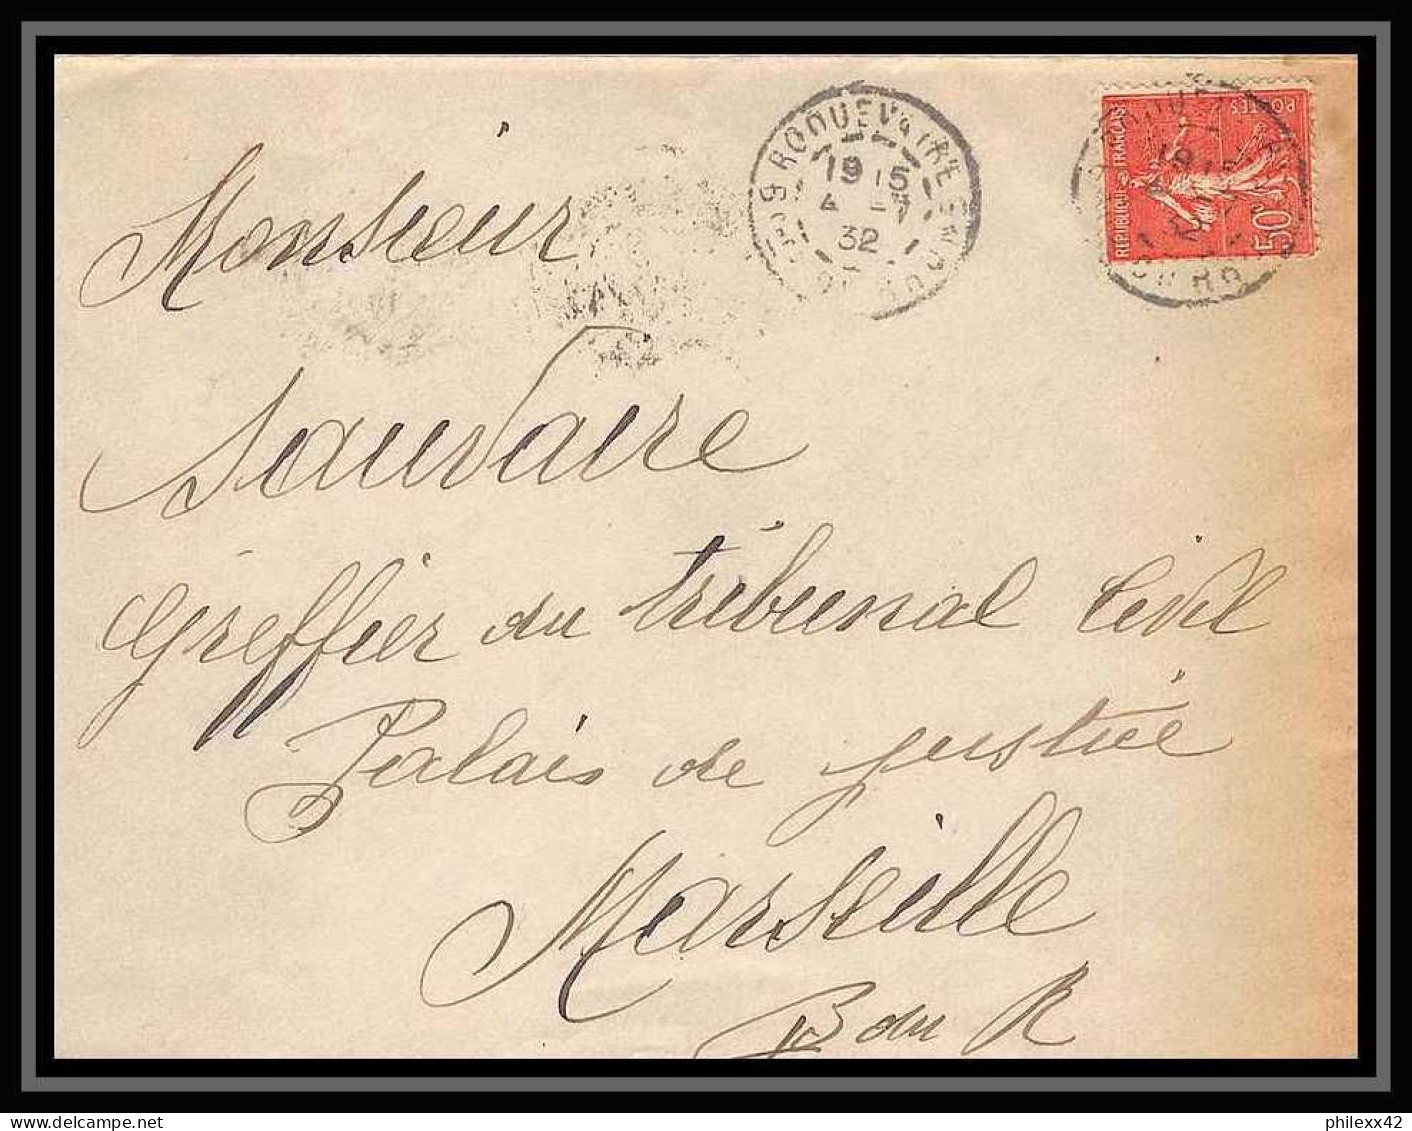 ROQUEVAIRE
19 15
4 - 7
32
REPUBLIQUE FRANÇAISE
POSTES
50
Monsieur
Sauvaire
Greffier du tribunal Civil
Palais de justice
Marseille
B du R
philexx42